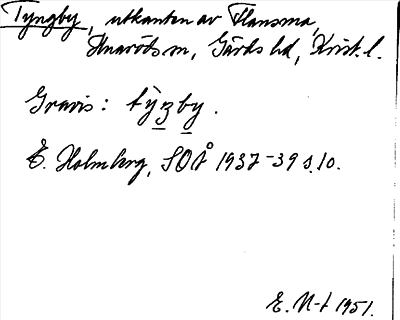 Tyngby, utkanten av Hansma,
Hnaröds sn, Gärds hd, Krist. l.
Gravis: tỳŋby.
E. Holmberg, SOÅ 1937-39 s. 10.
E. N-t 1951.